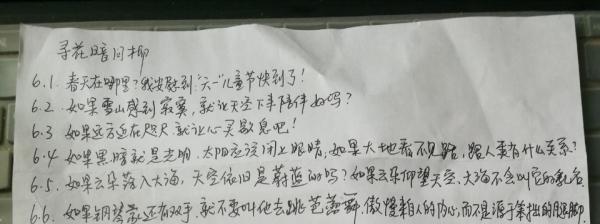 寻花暗问柳
6.1. 春天在哪里?我安慰到:"六一"儿童节快到了!
6.2. 如果雪山感到寂寞,就让天空下来陪伴好吗?
6.3 如果远方近在咫尺,就让心灵歇息吧!
6.4 如果黑暗就是光明,太阳应该闭上眼睛,如果大地看不见路,路人要有什么关系?
6.5. 如果云朵落入大海,天空依旧是蔚蓝的吗?如果云朵仰望天空,大海不会叫它的乳名
6.6. 如果钢琴家还有双手,就不要叫他去跳芭蕾舞,傲慢来自人的内心,而不是源于笨拙的腿脚